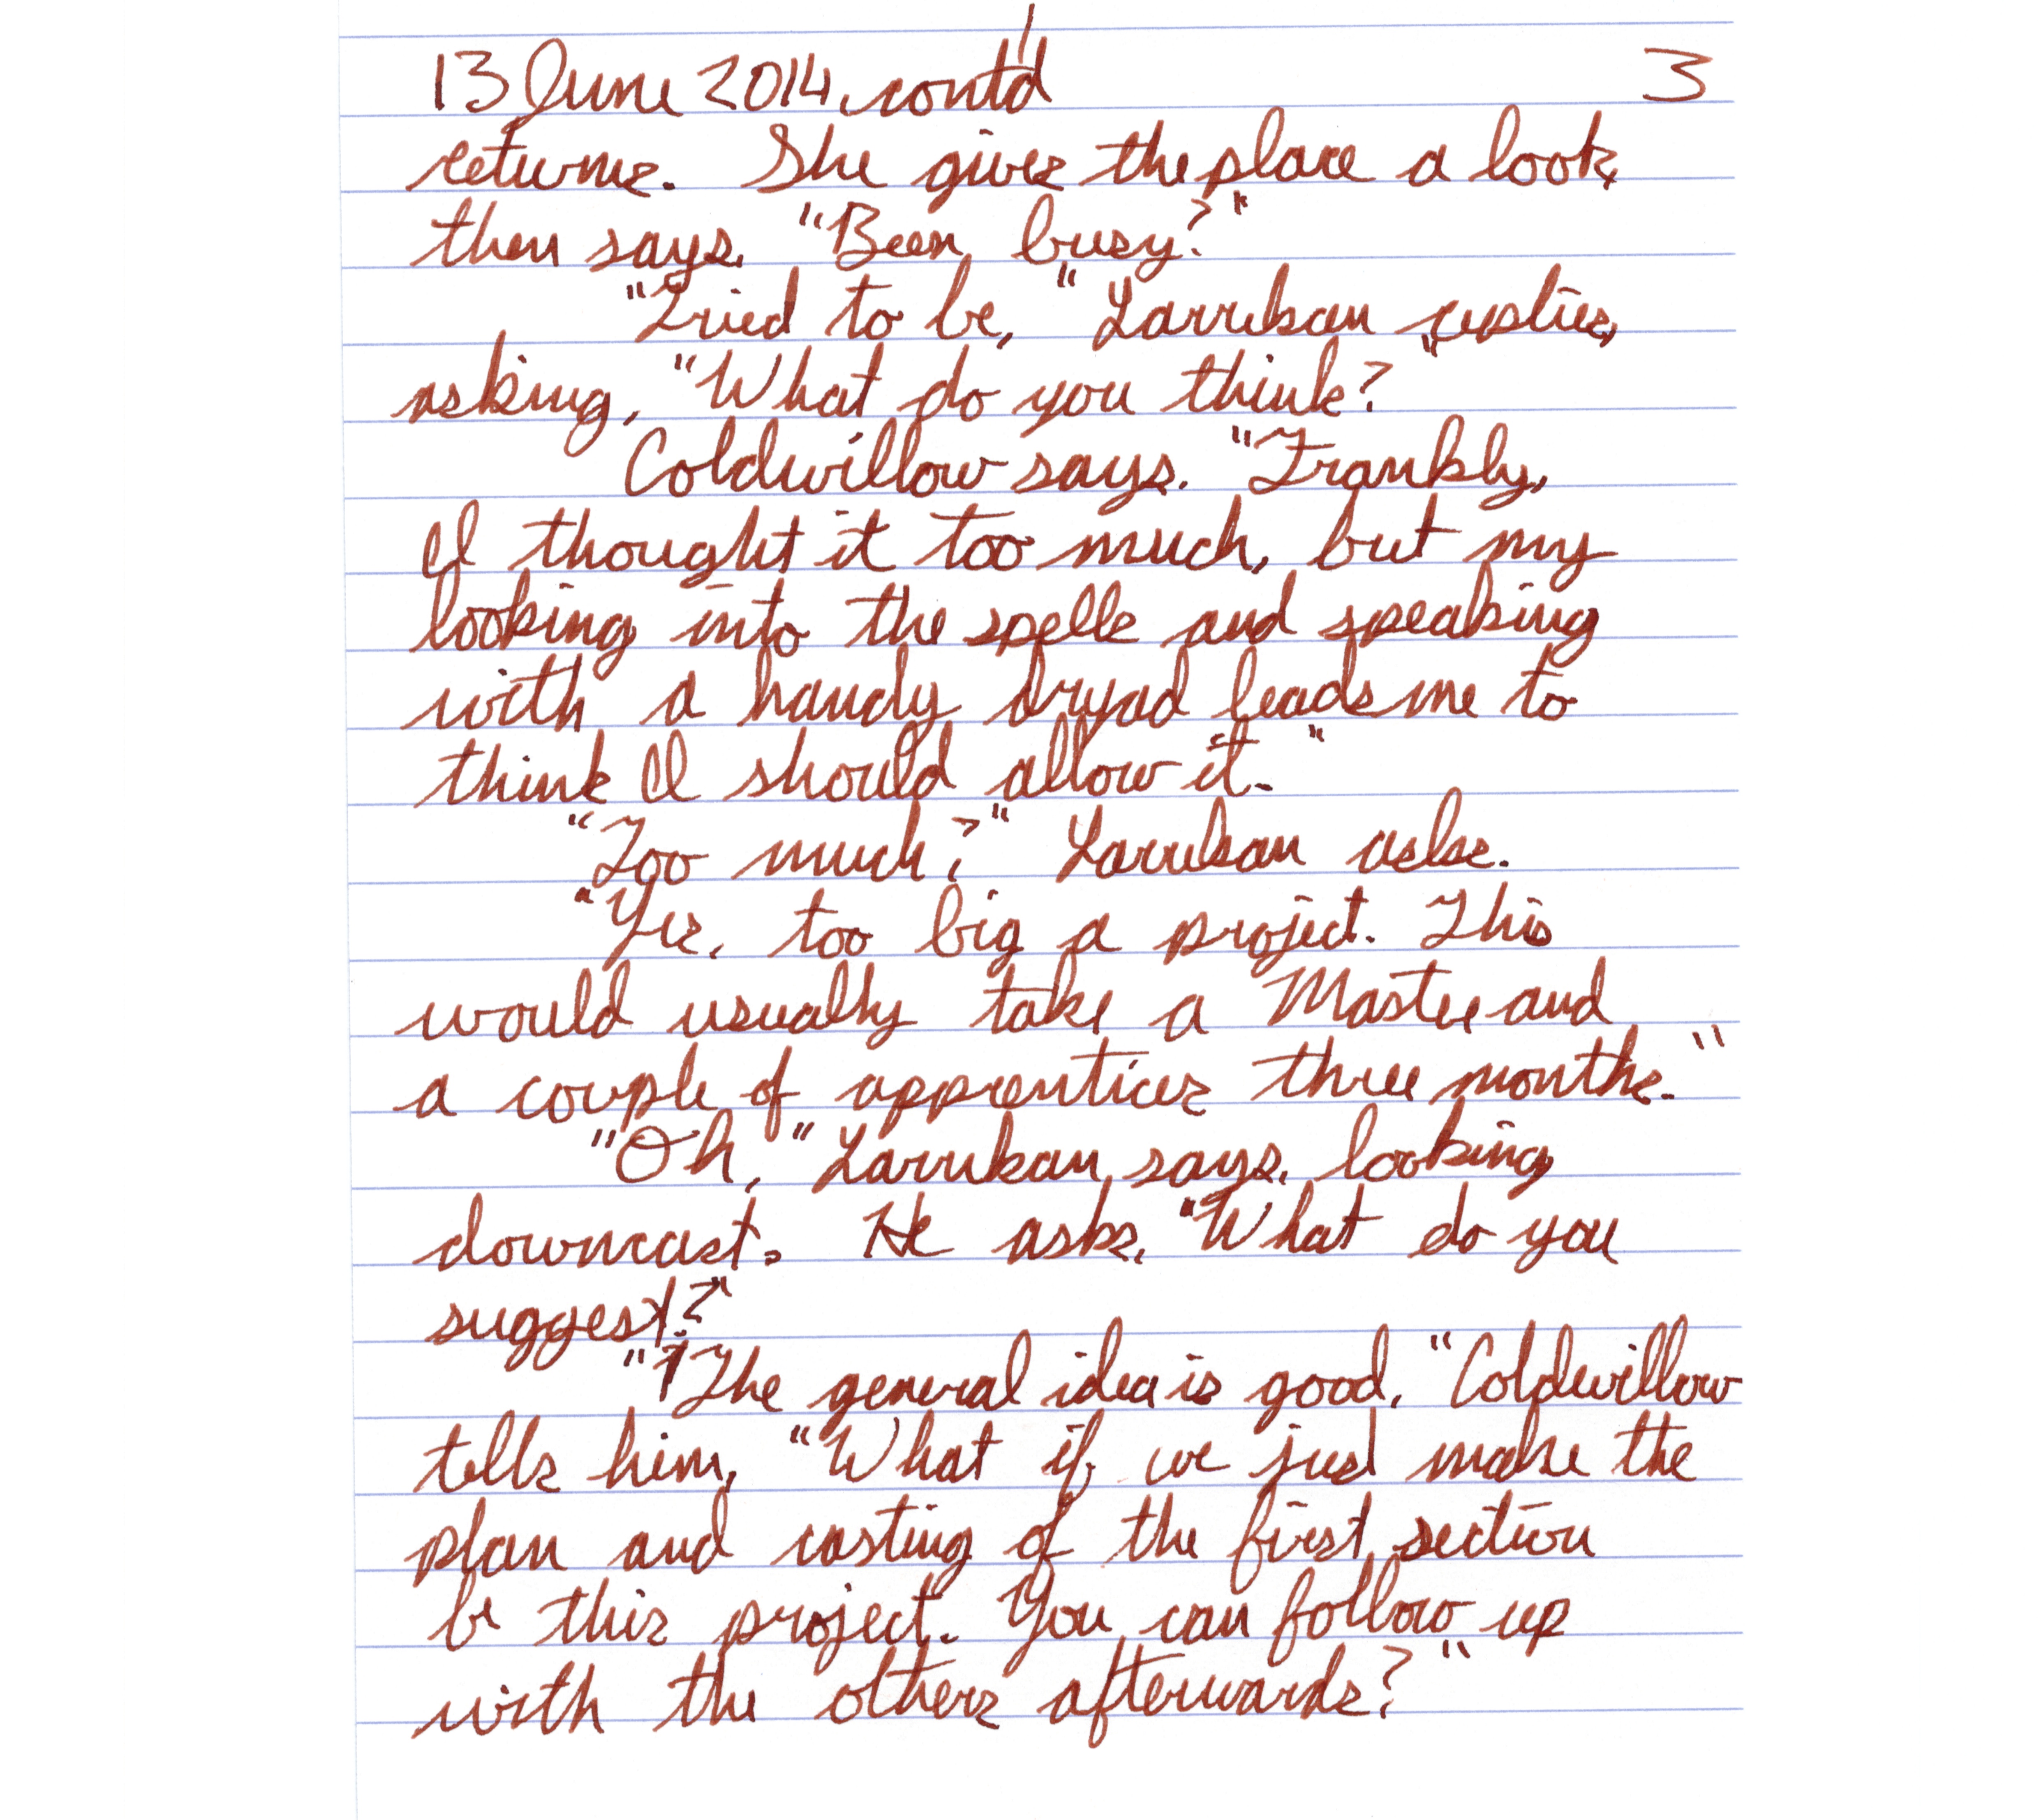 13 June 2014, cont'd 3
returns. She gives the place a look,
then says, "Been busy?"
"Tried to be," Larrikan replies,
asking, "What do you think?"
Coldwillow says, "Frankly,
I thought it too much, but my
looking into the spells and speaking
with a handy dryad leads me to
think I should allow it."
"Too much?" Larrikan asks.
"Yes, too big a project. This
would usually take a Master and
a couple of apprentices three months."
"Oh," Larrikan says, looking
downcast. He asks, "What do you
suggest?"
"The general idea is good," Coldwillow
tells him, "What if we just make the
plan and casting of the first section
be this project. You can follow up
with the others afterwards?"